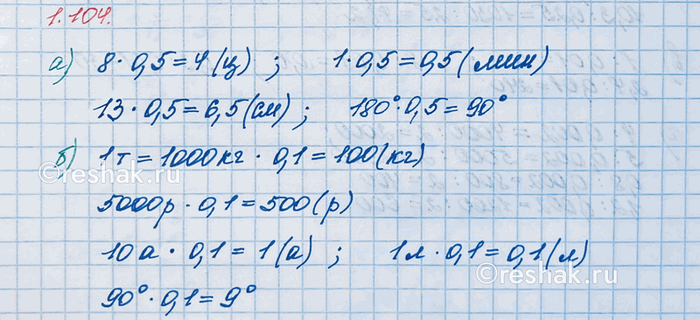 1.104.
а) 8 · 0,5 = 4 (ц) ; 1 · 0,5 = 0,5 (мин)
13 · 0,5 = 6,5 (см) ; 180° · 0,5 = 90°
б) 1 т = 1000 кг · 0,1 = 100 (кг)
5000р · 0,1 = 500 (р)
10 а · 0,1 = 1 (а) ; 1 л · 0,1 = 0,1 (л)
90° · 0,1 = 9°
©reshak.ru
©reshak.ru